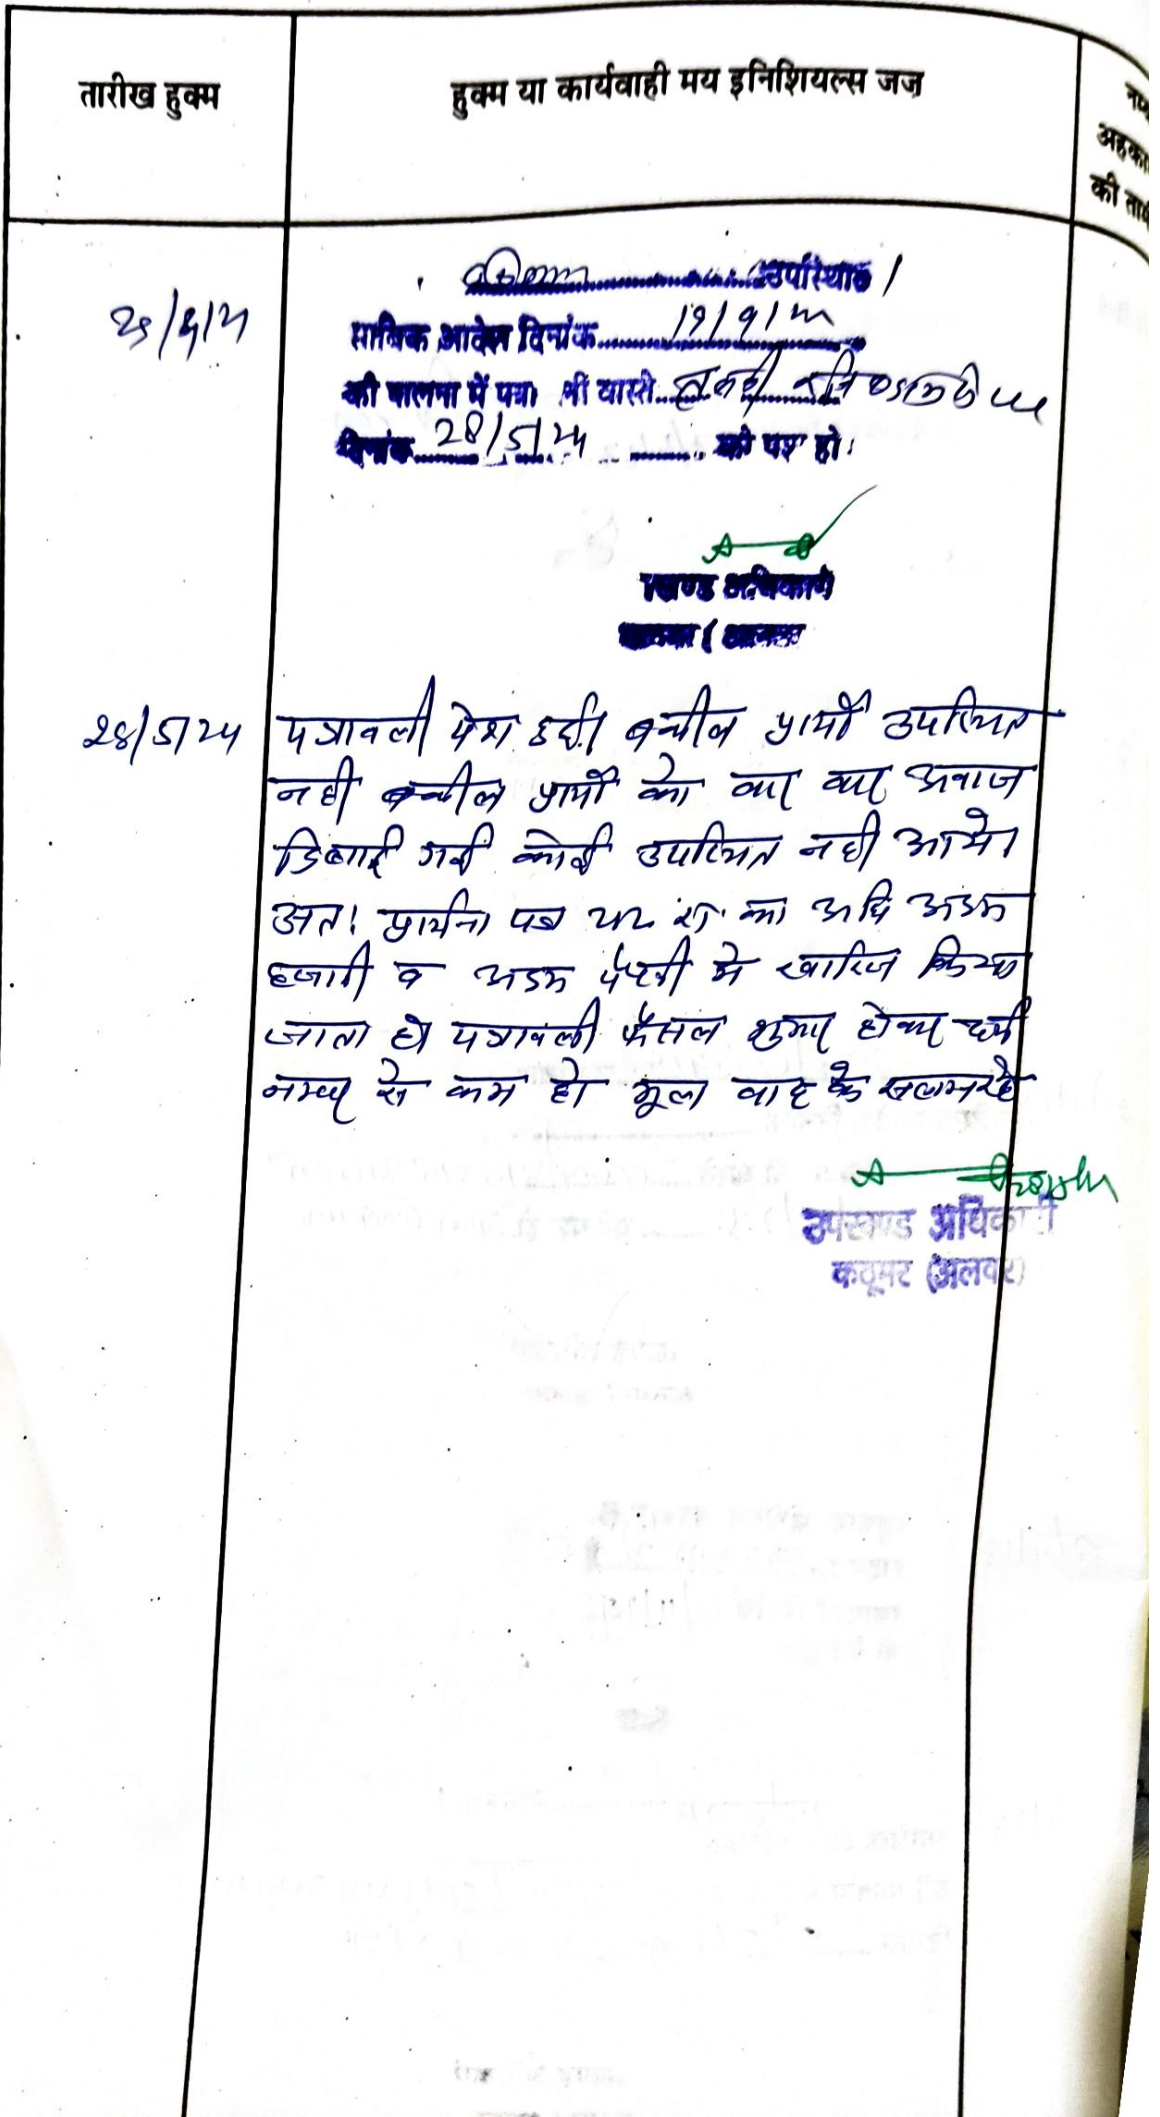 तारीख हुक्म
हुक्म या कार्यवाही मय इनिशियल्स जज
अहका
की ता
उपस्थित
साबिक आदेश दिनांक 19/9/24
की पालना में पत्रा ली वास्ते
दिनांक 28/5/24 को पेश हो।
खण्ड अधिकारी
28/5/24
पत्रावली पेश हुई। वकील प्रार्थी उपस्थित
नही वकील प्रार्थी को बार बार अवाज
डिलाई गई कोई उपस्थित नही आये।
अत: प्रार्थना पत्र धारा का अधि अदम
हजारी व अदम पैरवी मे खारिज किया
जाता है। पत्रावली फैसल शुमार होकर दर्ज
नम्बर से कम हो मूल वाद के सलग्न रहे
उपखण्ड अधिकारी
कठूमर (अलवर)